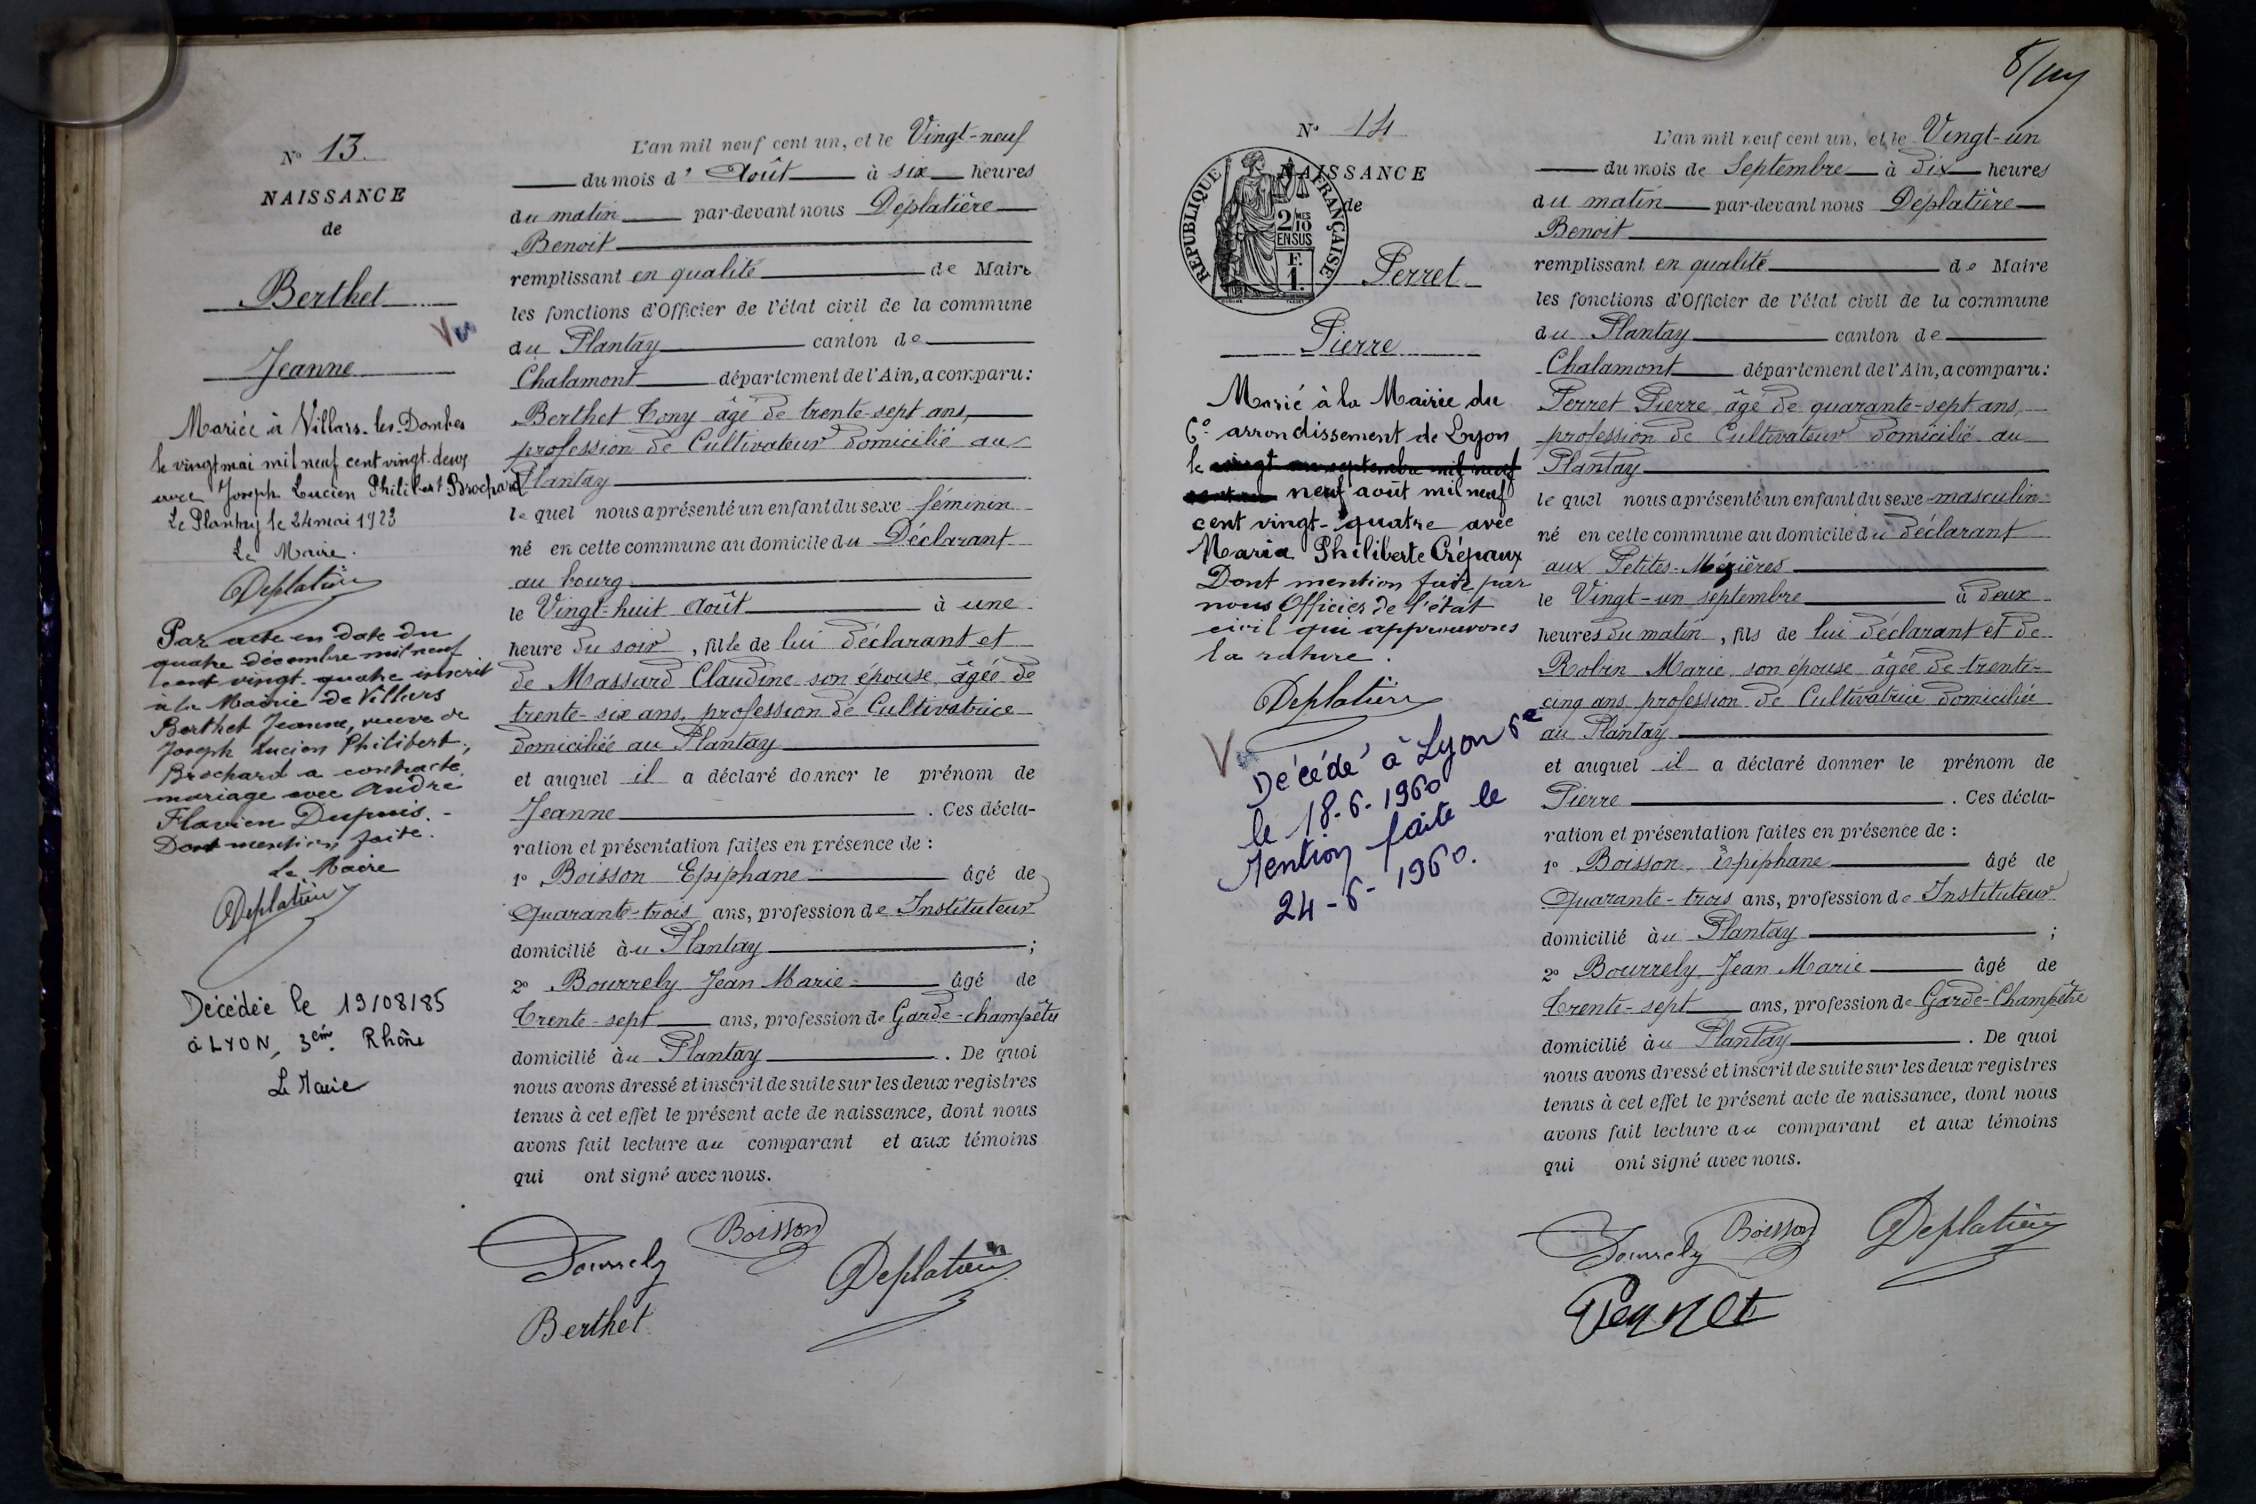 N° 13
NAISSANCE
de
Berthet
Vu
Jeanne
Mariée à Villars-les-Dombes
le vingt mai mil neuf cent vingt-deux
avec Joseph Lucien Philibert Brochard
Le Plantay le 24 mai 1923
Le Maire.
Deplatière
Par acte en date du
quatre décembre mil neuf
cent vingt-quatre inscrit
à la Mairie de Villars
Berthet Jeanne, veuve de
Joseph Lucien Philibert,
Brochard a contracté
mariage avec André
Flavien Dupuis.-
Dont mention faite.
Le Maire
Deplatière
Décédée le 19/08/85
à LYON, 3ème. Rhône
Le Maire
L'an mil neuf cent un, et le Vingt-neuf
du mois d' Août à six heures
du matin par-devant nous Déplatière
Benoit
remplissant en qualité de Maire
les fonctions d'Officier de l'état civil de la commune
du Plantay canton de
Chalamont département de l'Ain, a comparu :
Berthet Tony âgé de trente-sept ans,
profession de Cultivateur domicilié au
Plantay
lequel nous a présenté un enfant du sexe féminin
né en cette commune au domicile du Déclarant
au bourg
le Vingt-huit Août à une
heure du soir, fille de lui déclarant et
de Massard Claudine son épouse, âgée de
trente-six ans, profession de Cultivatrice
domiciliée au Plantay
et auquel il a déclaré donner le prénom de
Jeanne. Ces décla-
ration et présentation faites en présence de :
1° Boisson Epiphane âgé de
Quarante-trois ans, profession de Instituteur
domicilié àu Plantay ;
2° Bourrely Jean Marie âgé de
Trente-sept ans, profession de Garde-champêtre
domicilié àu Plantay. De quoi
nous avons dressé et inscrit de suite sur les deux registres
tenus à cet effet le présent acte de naissance, dont nous
avons fait lecture au comparant et aux témoins
qui ont signé avec nous.
Bourrely Boisson Deplatière
Berthet
8/
N° 14
NAISSANCE
de
RÉPUBLIQUE FRANÇAISE
2/10
EN SUS
F.
1.
Perret
Pierre
Marié à la Mairie du
6e arrondissement de Lyon
le vingt un septembre mil neuf
cent un neuf août mil neuf
cent vingt-quatre avec
Maria Philiberte Crépaux
Dont mention faite par
nous Officier de l'état
civil qui approuvons
la rature.
Deplatière
Vu
Décédé à Lyon 6e
le 18-6-1960
Mention faite le
24-6-1960.
L'an mil neuf cent un, et le Vingt-un
du mois de Septembre à Dix heures
du matin par-devant nous Déplatière
Benoit
remplissant en qualité de Maire
les fonctions d'Officier de l'état civil de la commune
du Plantay canton de
Chalamont département de l'Ain, a comparu :
Perret Pierre âgé de quarante-sept ans,
profession de Cultivateur domicilié au
Plantay
lequel nous a présenté un enfant du sexe masculin
né en cette commune au domicile du déclarant
aux Petites-Mézières
le Vingt-un septembre à deux
heures du matin, fils de lui déclarant et de
Robin Marie son épouse âgée de trente-
cinq ans profession de Cultivatrice domiciliée
au Plantay
et auquel il a déclaré donner le prénom de
Pierre. Ces décla-
ration et présentation faites en présence de :
1° Boisson Epiphane âgé de
Quarante-trois ans, profession de Instituteur
domicilié àu Plantay ;
2° Bourrely Jean Marie âgé de
Trente-sept ans, profession de Garde-Champêtre
domicilié àu Plantay. De quoi
nous avons dressé et inscrit de suite sur les deux registres
tenus à cet effet le présent acte de naissance, dont nous
avons fait lecture au comparant et aux témoins
qui ont signé avec nous.
Bourrely Boisson Deplatière
Perret